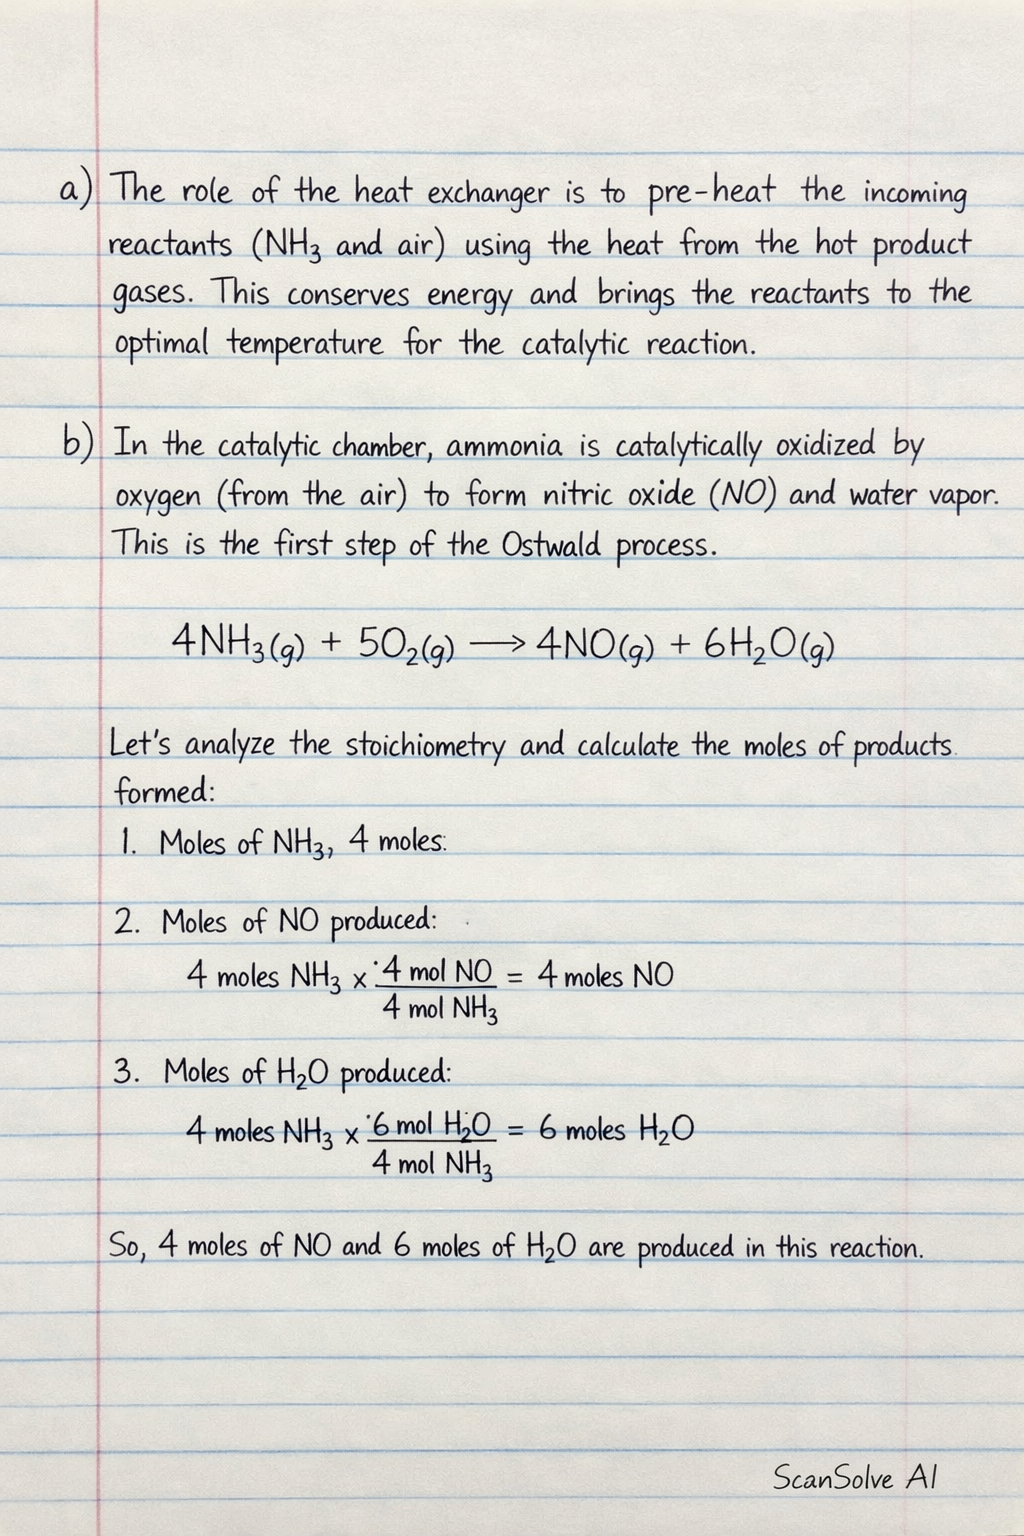 a) The role of the heat exchanger is to pre-heat the incoming
reactants (NH₃ and air) using the heat from the hot product
gases. This conserves energy and brings the reactants to the
optimal temperature for the catalytic reaction.
b) In the catalytic chamber, ammonia is catalytically oxidized by
oxygen (from the air) to form nitric oxide (NO) and water vapor.
This is the first step of the Ostwald process.
4NH₃(g) + 5O₂(g) ⟶ 4NO(g) + 6H₂O(g)
Let's analyze the stoichiometry and calculate the moles of products.
formed:
1. Moles of NH₃, 4 moles:
2. Moles of NO produced:
4 moles NH₃ x 4 mol NO = 4 moles NO
4 mol NH₃
3. Moles of H₂O produced:
4 moles NH₃ x 6 mol H₂O = 6 moles H₂O
4 mol NH₃
So, 4 moles of NO and 6 moles of H₂O are produced in this reaction.
ScanSolve AI